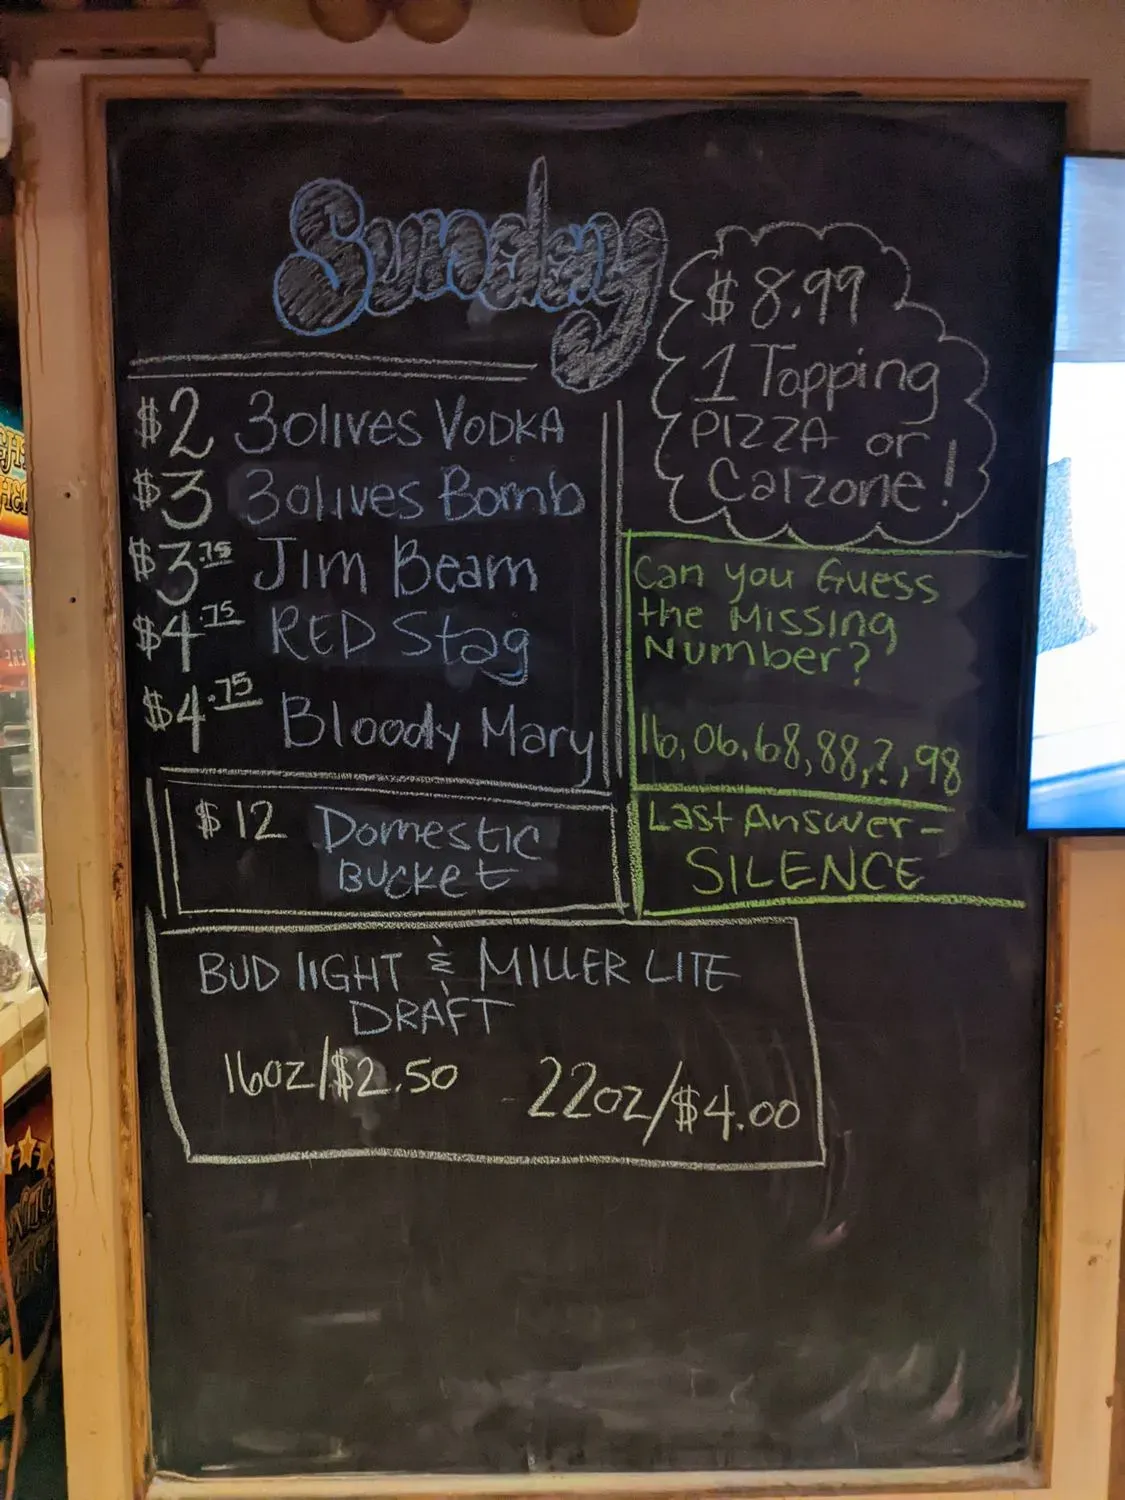 Sunday
$2 3olives VODKA
$3 3olives Bomb
$3.75 Jim Beam
$4.75 RED Stag
$4.75 Bloody Mary
$12 Domestic
Bucket
$8.99
1 Topping
PIZZA or
Calzone!
Can you Guess
the Missing
Number?
16, 06, 68, 88, ?, 98
Last Answer-
SILENCE
BUD lIGHT & MILLER LITE
DRAFT
16oz/$2.50 22oz/$4.00